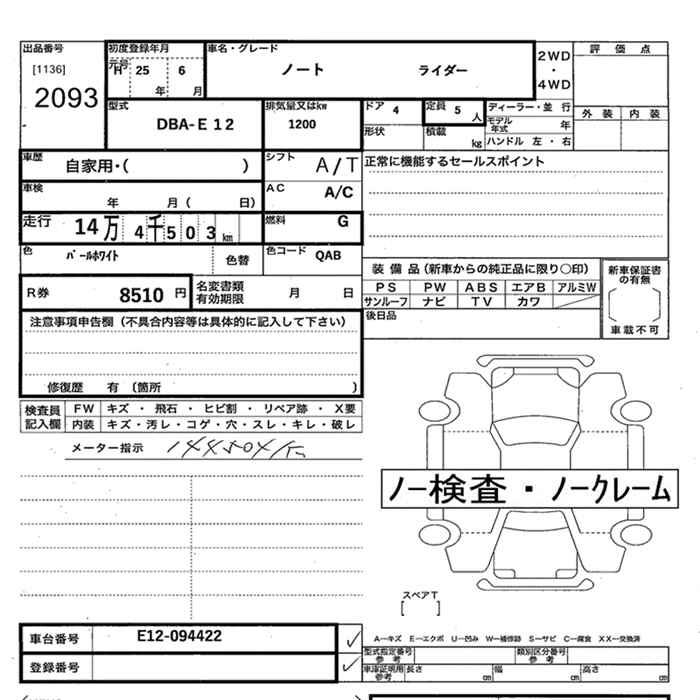 出品番号 初度登録年月 車名・グレード 2WD ・ 4WD 評価点
[1136] 元号 H 25 6 ノート ライダー
2093 年 月 外装 内装
型式 排気量又はkw ドア 4 定員 5 人 ディーラー・並行
DBA-E12 1200 モデル年式 年
形状 積載 kg ハンドル 左・右
車歴 自家用・( ) シフト A/T 正常に機能するセールスポイント
車検 年 月( 日) AC A/C
走行 14万 4千503 km 燃料 G
色 パールホワイト 色替 色コード QAB
装備品(新車からの純正品に限り○印) 新車保証書の有無
R券 8510円 名変書類有効期限 月 日 PS PW ABS エアB アルミW
サンルーフ ナビ TV カワ
注意事項申告欄(不具合内容等は具体的に記入して下さい) 後日品 車載不可
修復歴 有 (箇所 )
検査員記入欄 FW キズ ・ 飛石 ・ ヒビ割 ・ リペア跡 ・ X要
内装 キズ・汚レ・コゲ・穴・スレ・キレ・破レ
メーター指示 144504km
ノー検査・ノークレーム
スペアT
[ ]
車台番号 E12-094422 ✓ A―キズ E―エクボ U―凹み W―補修跡 S―サビ C―腐食 XX―交換済
型式指定番号 参考 類別区分番号 参考
登録番号 ✓ 車庫証明用 参考 長さ cm 幅 cm 高さ cm